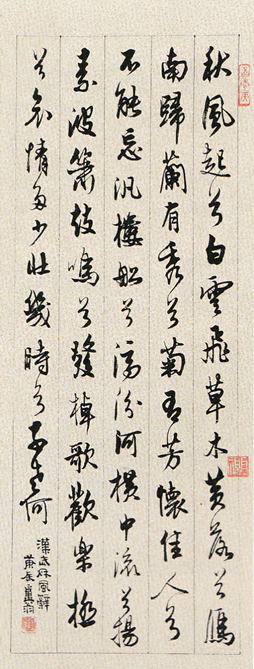 秋風起兮白雲飛草木黃落兮鴈
南歸蘭有秀兮菊有芳懷佳人兮
不能忘汎樓船兮濟汾河橫中流兮揚
素波簫鼓鳴兮發棹歌歡樂極
兮哀情多少壯幾時兮奈老何
漢武秋風辭